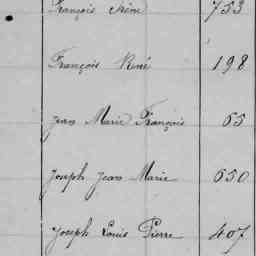 François Irène 753
François René 198
Jean Marie François 65
Joseph Jean Marie 650
Joseph Louis Pierre 407